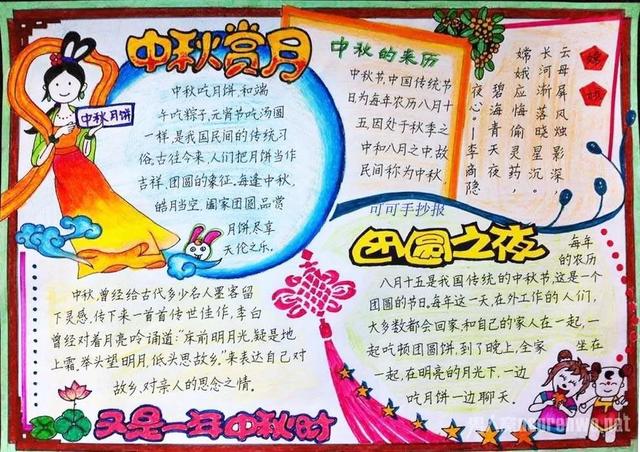 中秋赏月
中秋月饼
中秋吃月饼,和端
午吃粽子,元宵节吃汤圆
一样,是我国民间的传统习
俗。古往今来,人们把月饼当作
吉祥,团圆的象征。每逢中秋,
皓月当空,阖家团圆,品赏
月饼尽享
天伦之乐。
中秋的来历
中秋节,中国传统节
日为每年农历八月十
五,因处于秋季之
中和八月之中,故
民间称为中秋
嫦娥
云母屏风烛影深,
长河渐落晓星沉。
嫦娥应悔偷灵药,
碧海青天夜
夜心。—李商隐
可可手抄报
中秋,曾经给古代多少名人墨客留
下灵感,传下来一首首传世佳作,李白
曾经对着月亮吟诵道:“床前明月光,疑是地
上霜,举头望明月,低头思故乡。”来表达自己对
故乡,对亲人的思念之情。
又是一年中秋时
团圆之夜
每年
的农历
八月十五是我国传统的中秋节,这是一个
团圆的节日,每年这一天,在外工作的人们,
大多数都会回家,和自己的家人在一起,一
起吃顿团圆饼,到了晚上,全家坐在
一起,在明亮的月光下,一边
吃月饼一边聊天。